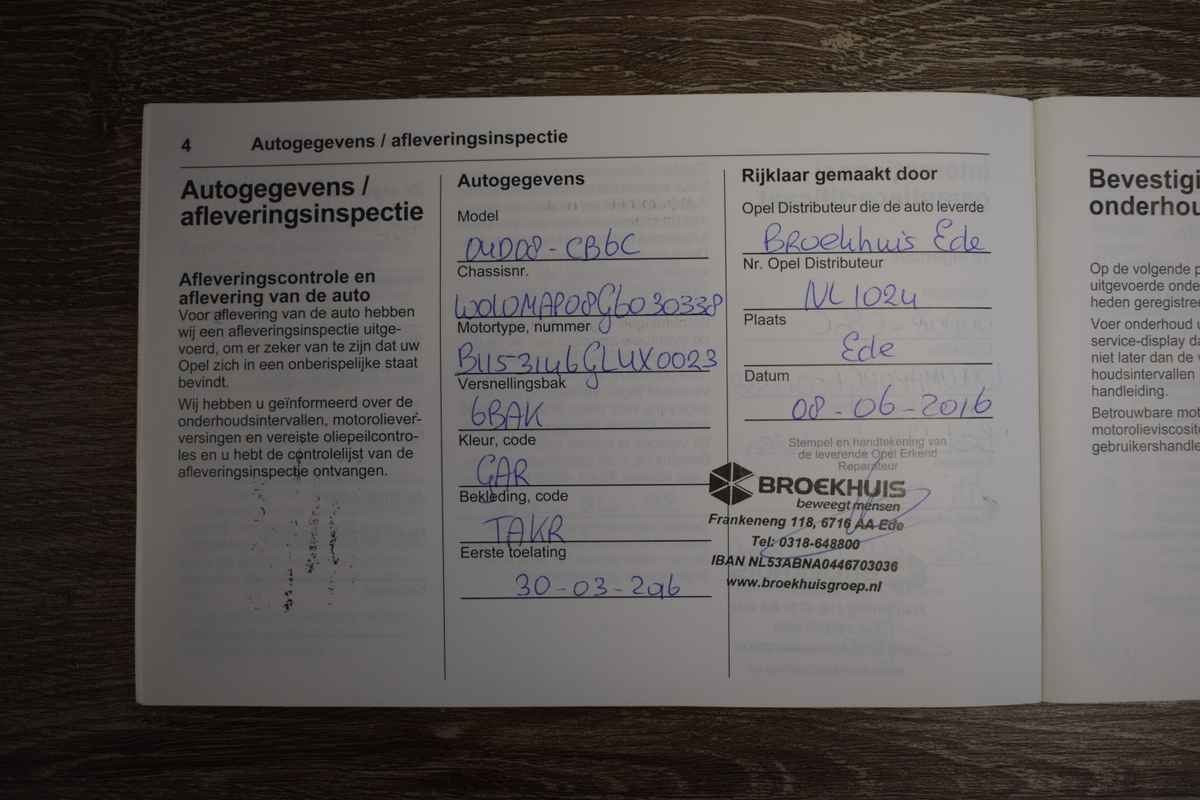 4 Autogegevens / afleveringsinspectie
Autogegevens /
afleveringsinspectie
Afleveringscontrole en
aflevering van de auto
Voor aflevering van de auto hebben
wij een afleveringsinspectie uitge-
voerd, om er zeker van te zijn dat uw
Opel zich in een onberispelijke staat
bevindt.
Wij hebben u geïnformeerd over de
onderhoudsintervallen, motoroliever-
versingen en vereiste oliepeilcontro-
les en u hebt de controlelijst van de
afleveringsinspectie ontvangen.
Autogegevens
Model
04D08-CB6C
Chassisnr.
W0L0MAP08G6030338
Motortype, nummer
B1153146GLUX0023
Versnellingsbak
6BAK
Kleur, code
GAR
Bekleding, code
TAKR
Eerste toelating
30-03-2016
Rijklaar gemaakt door
Opel Distributeur die de auto leverde
Broekhuis Ede
Nr. Opel Distributeur
NL1024
Plaats
Ede
Datum
08-06-2016
Stempel en handtekening van
de leverende Opel Erkend
Reparateur
BROEKHUIS
beweegt mensen
Frankeneng 118, 6716 AA Ede
Tel: 0318-648800
IBAN NL53ABNA0446703036
www.broekhuisgroep.nl
Bevestigi
onderhou
Op de volgende p
uitgevoerde onde
heden geregistree
Voer onderhoud u
service-display da
niet later dan de v
houdsintervallen
handleiding.
Betrouwbare mot
motorolieviscosite
gebruikershandle